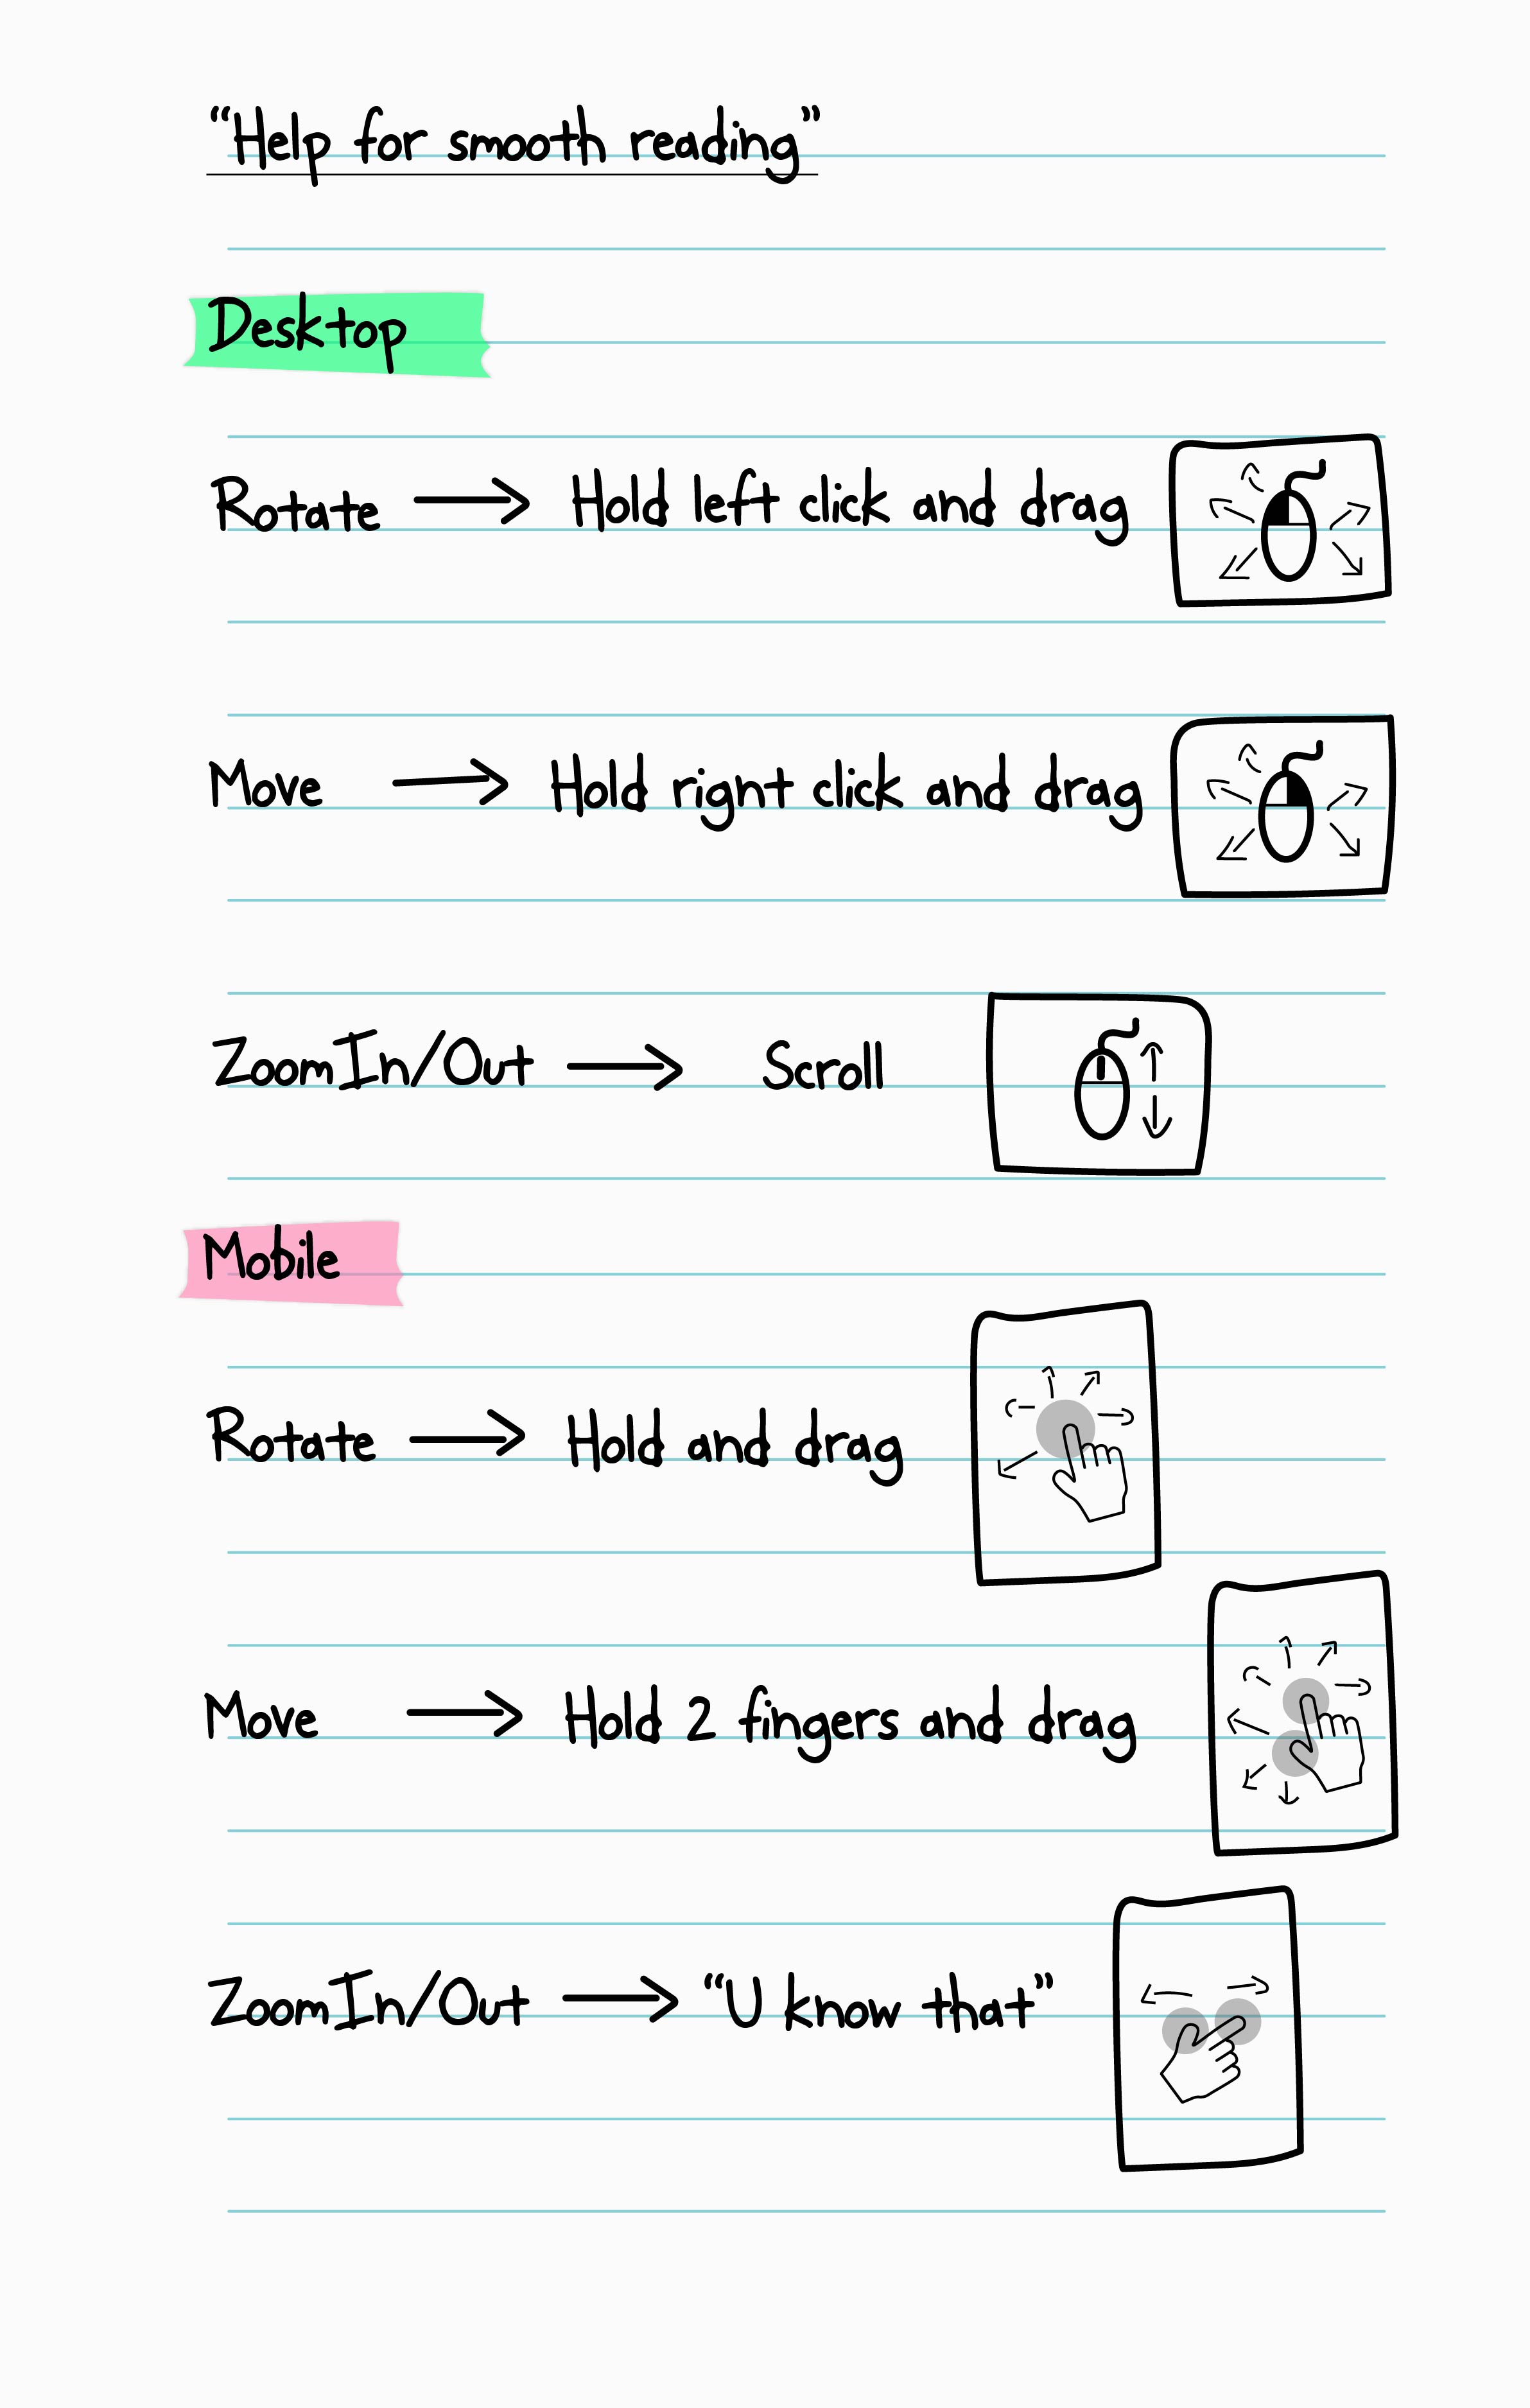 “Help for smooth reading”
Desktop
Rotate → Hold left click and drag
Move → Hold right click and drag
ZoomIn/Out → Scroll
Mobile
Rotate → Hold and drag
Move → Hold 2 fingers and drag
ZoomIn/Out → “U know that”